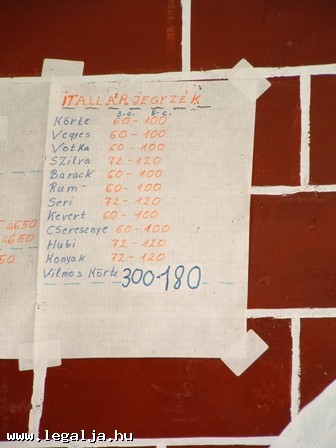 ITALLÁRJEGYZÉK
3.c. 5.c.
Körte 60-100
Vegyes 60-100
Votka 60-100
Szilva 72-120
Barack 60-100
Rum 60-100
Seri 72-120
Kevert 60-100
Cseresznye 60-100
Hubi 72-120
Konyak 72-120
Vilmos Körte 300-180
4650
4650
50
www.legalja.hu